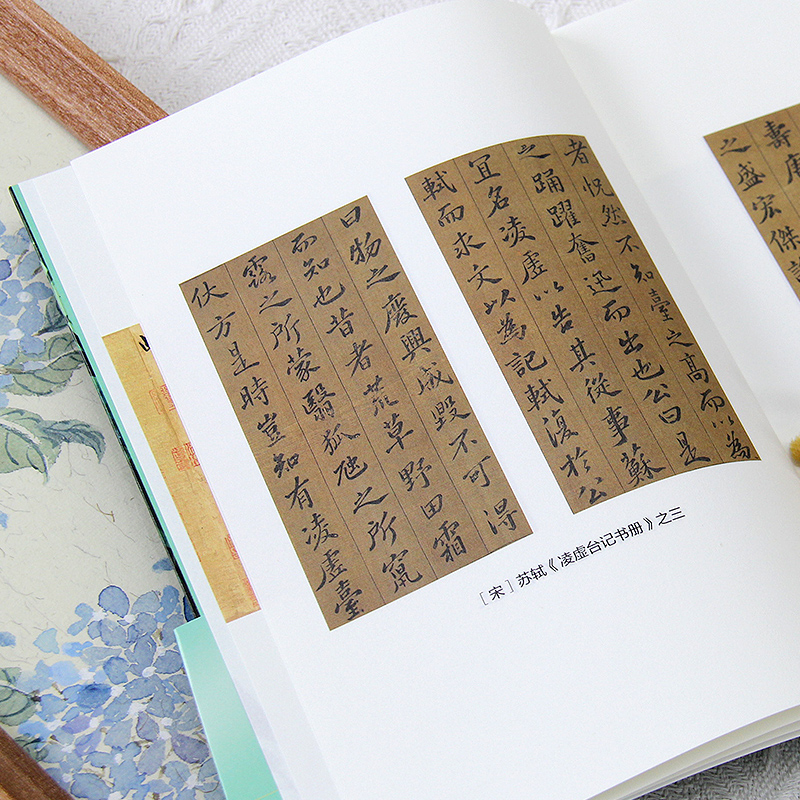 壽唐
之盛宏傑詭
者怳然不知臺之高而以為
之踊躍奮迅而出也公曰是
宜名凌虛以告其從事蘇
軾而求文以為記軾復於公
曰物之廢興成毀不可得
而知也昔者荒草野田霜
露之所蒙翳狐虺之所竄
伏方是時豈知有凌虛臺
［宋］苏轼《凌虚台记书册》之三